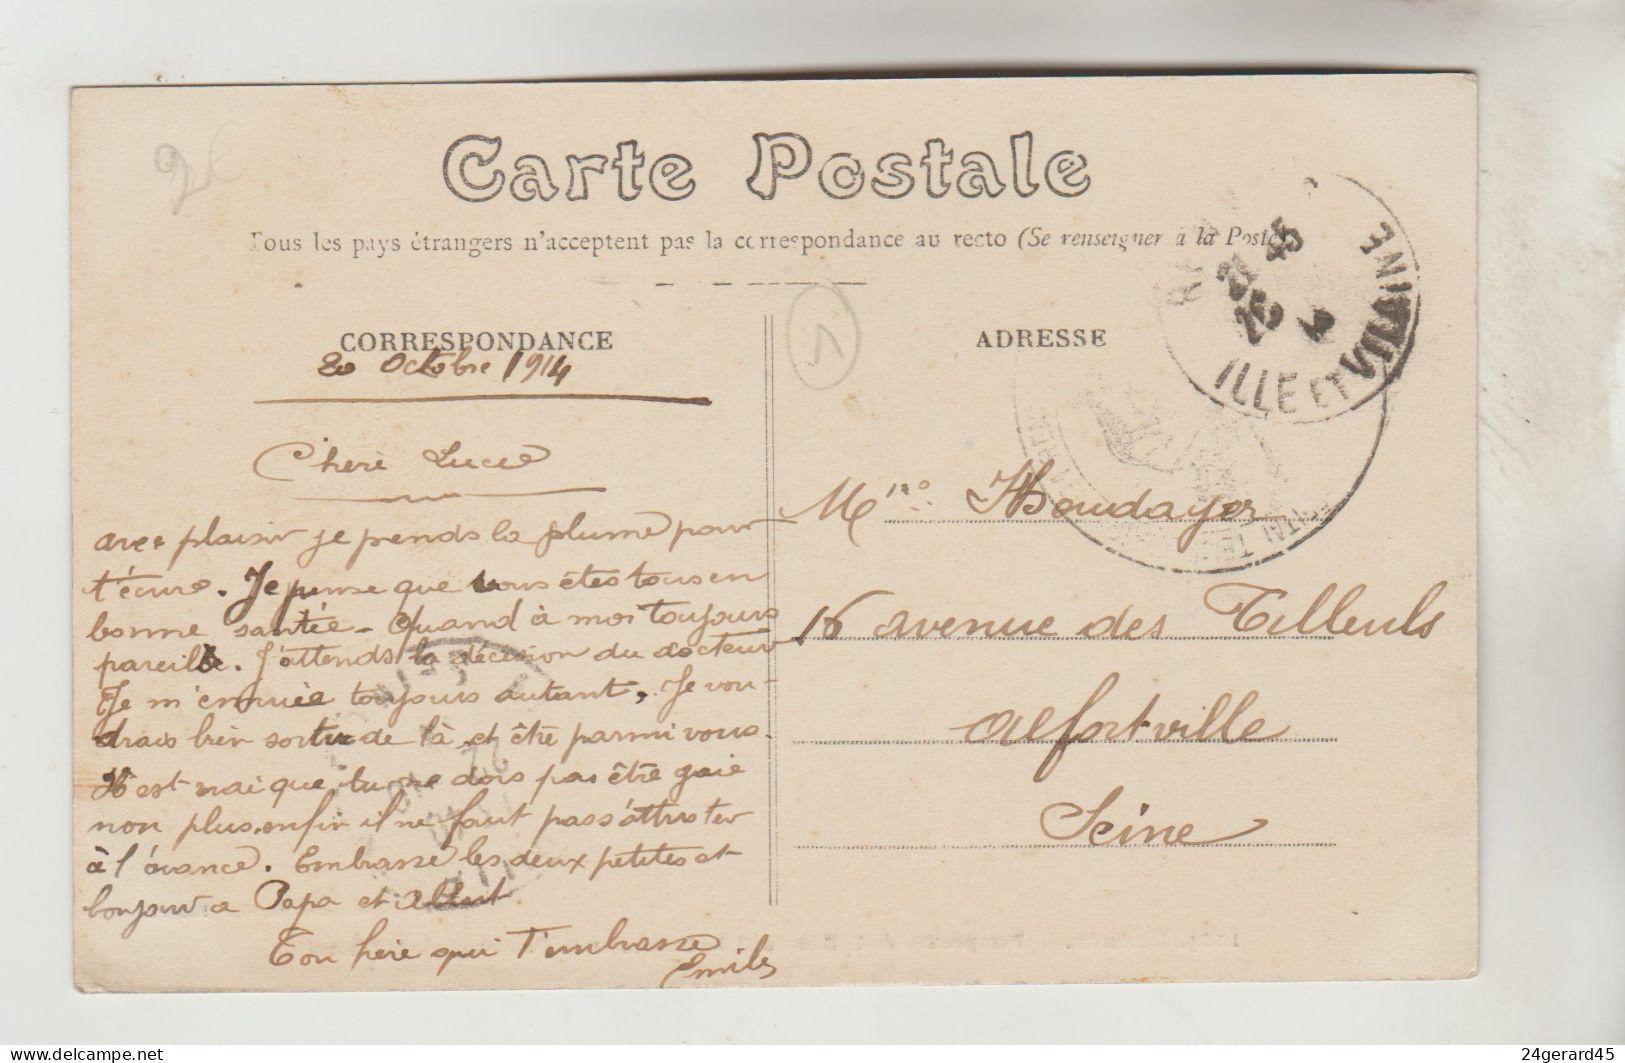 Carte Postale
Tous les pays étrangers n'acceptent pas la correspondance au recto (Se renseigner à la Poste)
CORRESPONDANCE
20 Octobre 1914
Chère Luce
avec plaisir je prends la plume pour
t'écrire. Je pense que vous êtes tous en
bonne santée - Quand à moi toujours
pareille. J'attends la décision du docteur
Je m'ennuie toujours autant, Je vou-
drais bien sortir de là et être parmi vous.
Il est vrai que tu ne dois pas être gaie
non plus. enfin il ne faut pas s'attrister
à l'avance. Embrasse les deux petites et
bonjour a Papa et Albert
Ton frère qui t'embrasse
Emile
ADRESSE
Houdayer
16 avenue des Tilleuls
Alfortville
Seine
21 45
ILLE ET VILAINE
24gerard45
delcampe.net